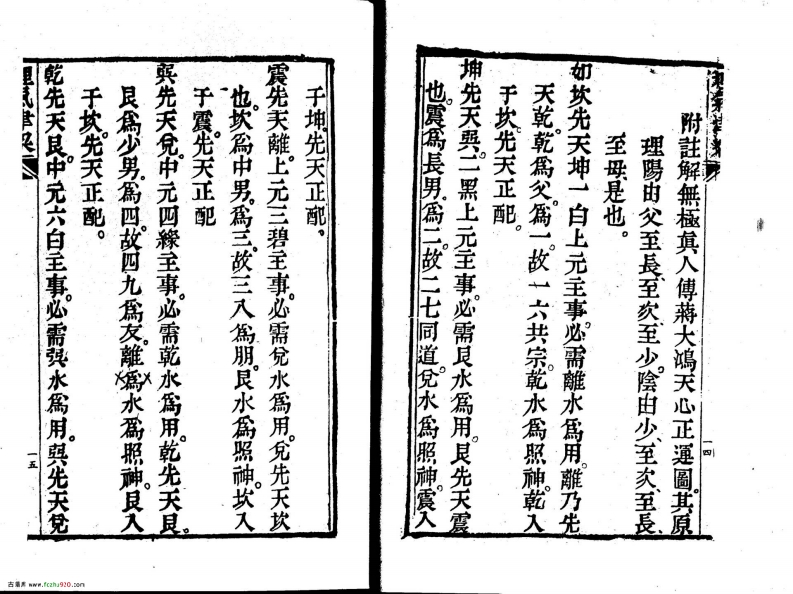 附註解無極眞人傳蔣大鴻天心正運圖其原
理陽由父至長至次至少陰由少至次至長
至母是也。
如坎先天坤一白上元主事必需離水爲用。離乃先
天乾乾爲父。爲一。故一六共宗。乾水爲照神。乾入
于坎。先天正配。
坤先天巽。二黑上元主事。必需艮水爲用。艮先天震
也。震爲長男。爲二。故二七同道。兌水爲照神。震入
一四
于坤。先天正配。
震先天離。上元三碧主事。必需兌水爲用。兌先天坎
也。坎爲中男。爲三。故三八爲朋。艮水爲照神。坎入
于震。先天正配
巽先天兌。中元四綠主事必需乾水爲用。乾先天艮。
艮爲少男。爲四。故四九爲友。離爲水爲照神。艮入
于坎。先天正配。
乾先天艮。中元六白主事。必需巽水爲用。巽先天兌
一五
古易库 www.fczhu920.com